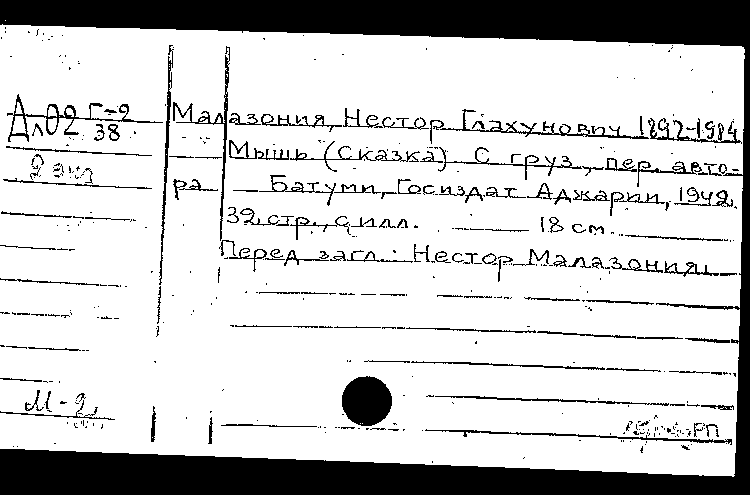 Дл02 Г-2
38
2 экз
Малазония, Нестор Глахунович 1892-1984
Мышь. (Сказка). С груз., пер. авто-
ра. — Батуми, Госиздат Аджарии, 1942.
32 стр., с илл. — 18 см.
Перед загл.: Нестор Малазония.
М-2
РП